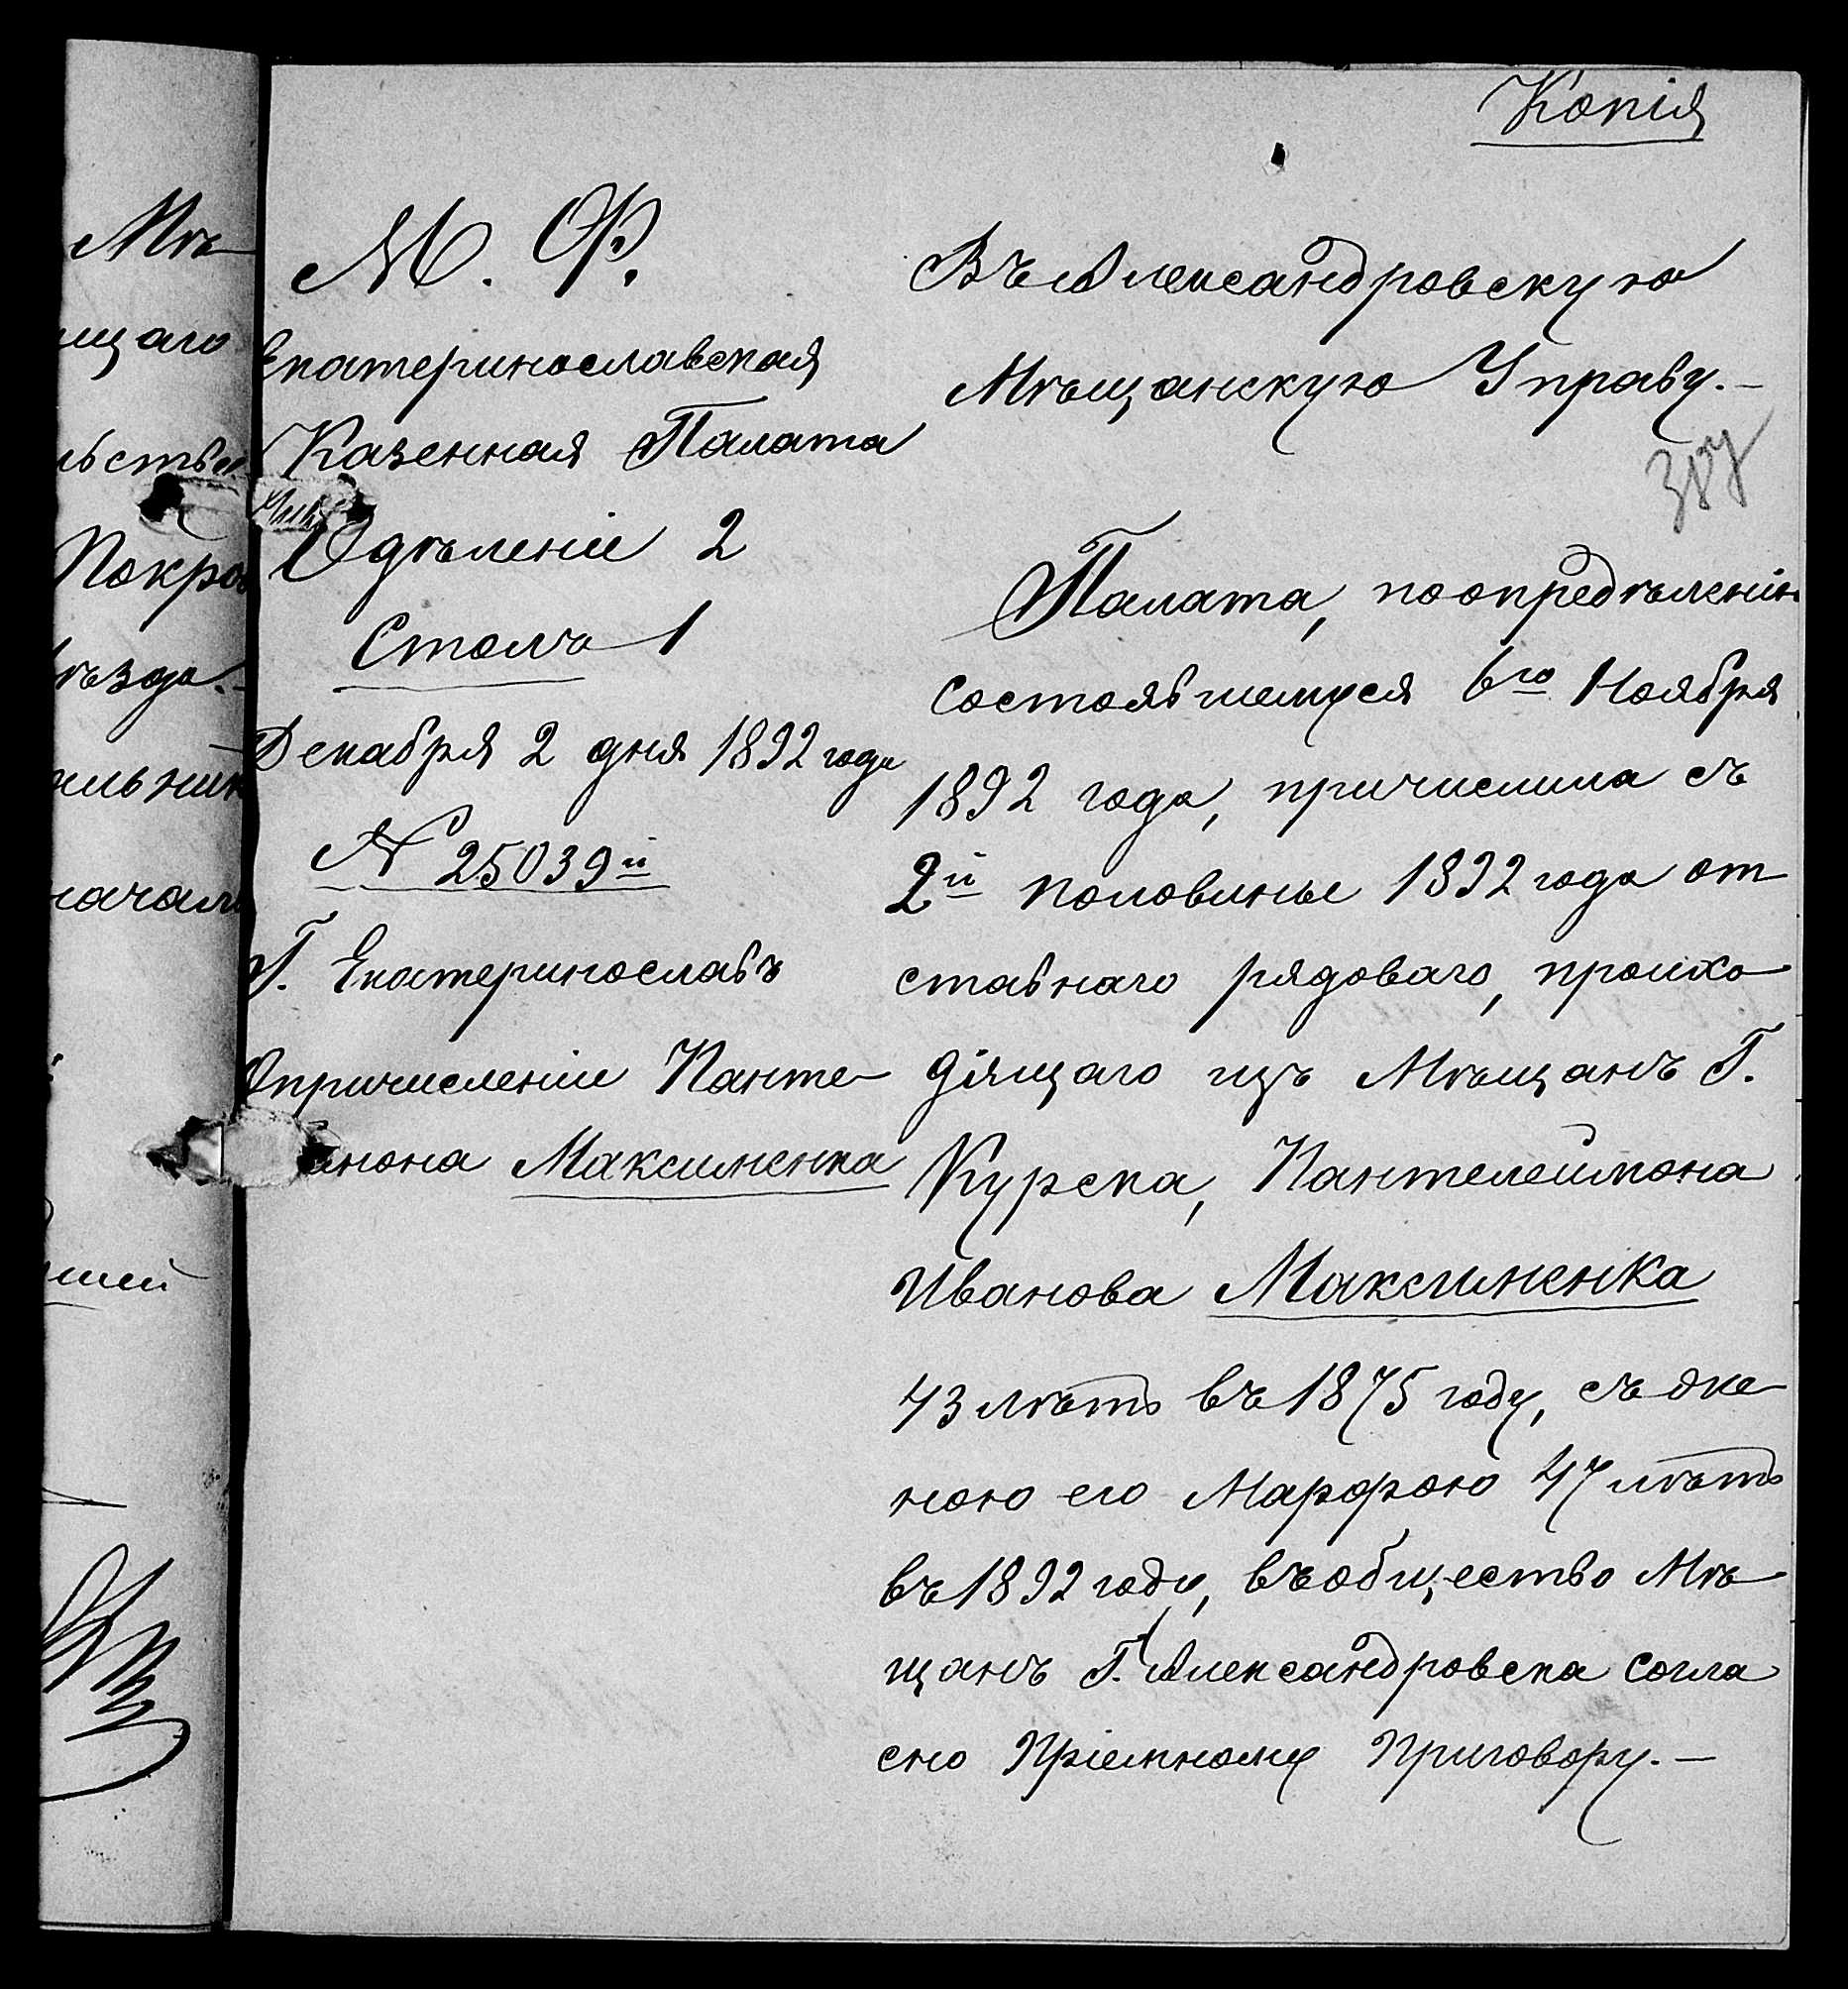 Копія
М. Ф.
Екатеринославская
Казенная Палата
Отдѣленіе 2
Столъ 1
Декабря 2 дня 1892 года
№ 25039й
Г. Екатеринославъ
О причисленіи Панте-
имона Максименка
Въ Александровскую
Мѣщанскую Управу.-
Палата, по опредѣленію
состоявшемуся 6го Ноября
1892 года, причислила съ
2й половины 1892 года от
ставнаго рядоваго, происхо
дящаго изъ Мѣщанъ Г.
Курска, Пантелеймона
Иванова Максименка
43 лѣтъ въ 1875 году, съ же
ною его Марфою 47 лѣтъ
въ 1892 году, въ общество Мѣ
щанъ Г. Александровска согла
сно Пріемному Приговору.-
Мѣ
щаго
ьств
Покров
ѣзда.-
альник
начал
шей